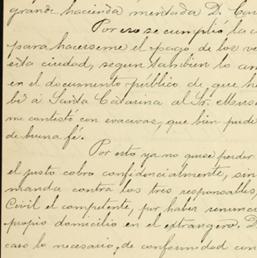 grande hacienda mentada D. Con
Por eso se cumplió la
para hacerseme el pago de los va
esta ciudad, segun tambien lo
en el documento público de que he
bí á Santa Catarina al Sr.
me contestó con evasivas, que bien pude
de buena fé.
Por esto ya no quise perder
el justo cobro confidencialmente, sin
manda contra los tres responsables,
Civil el competente, por haber renunci
propio domicilio en el extrangero. D
caso lo necesario, de conformidad con